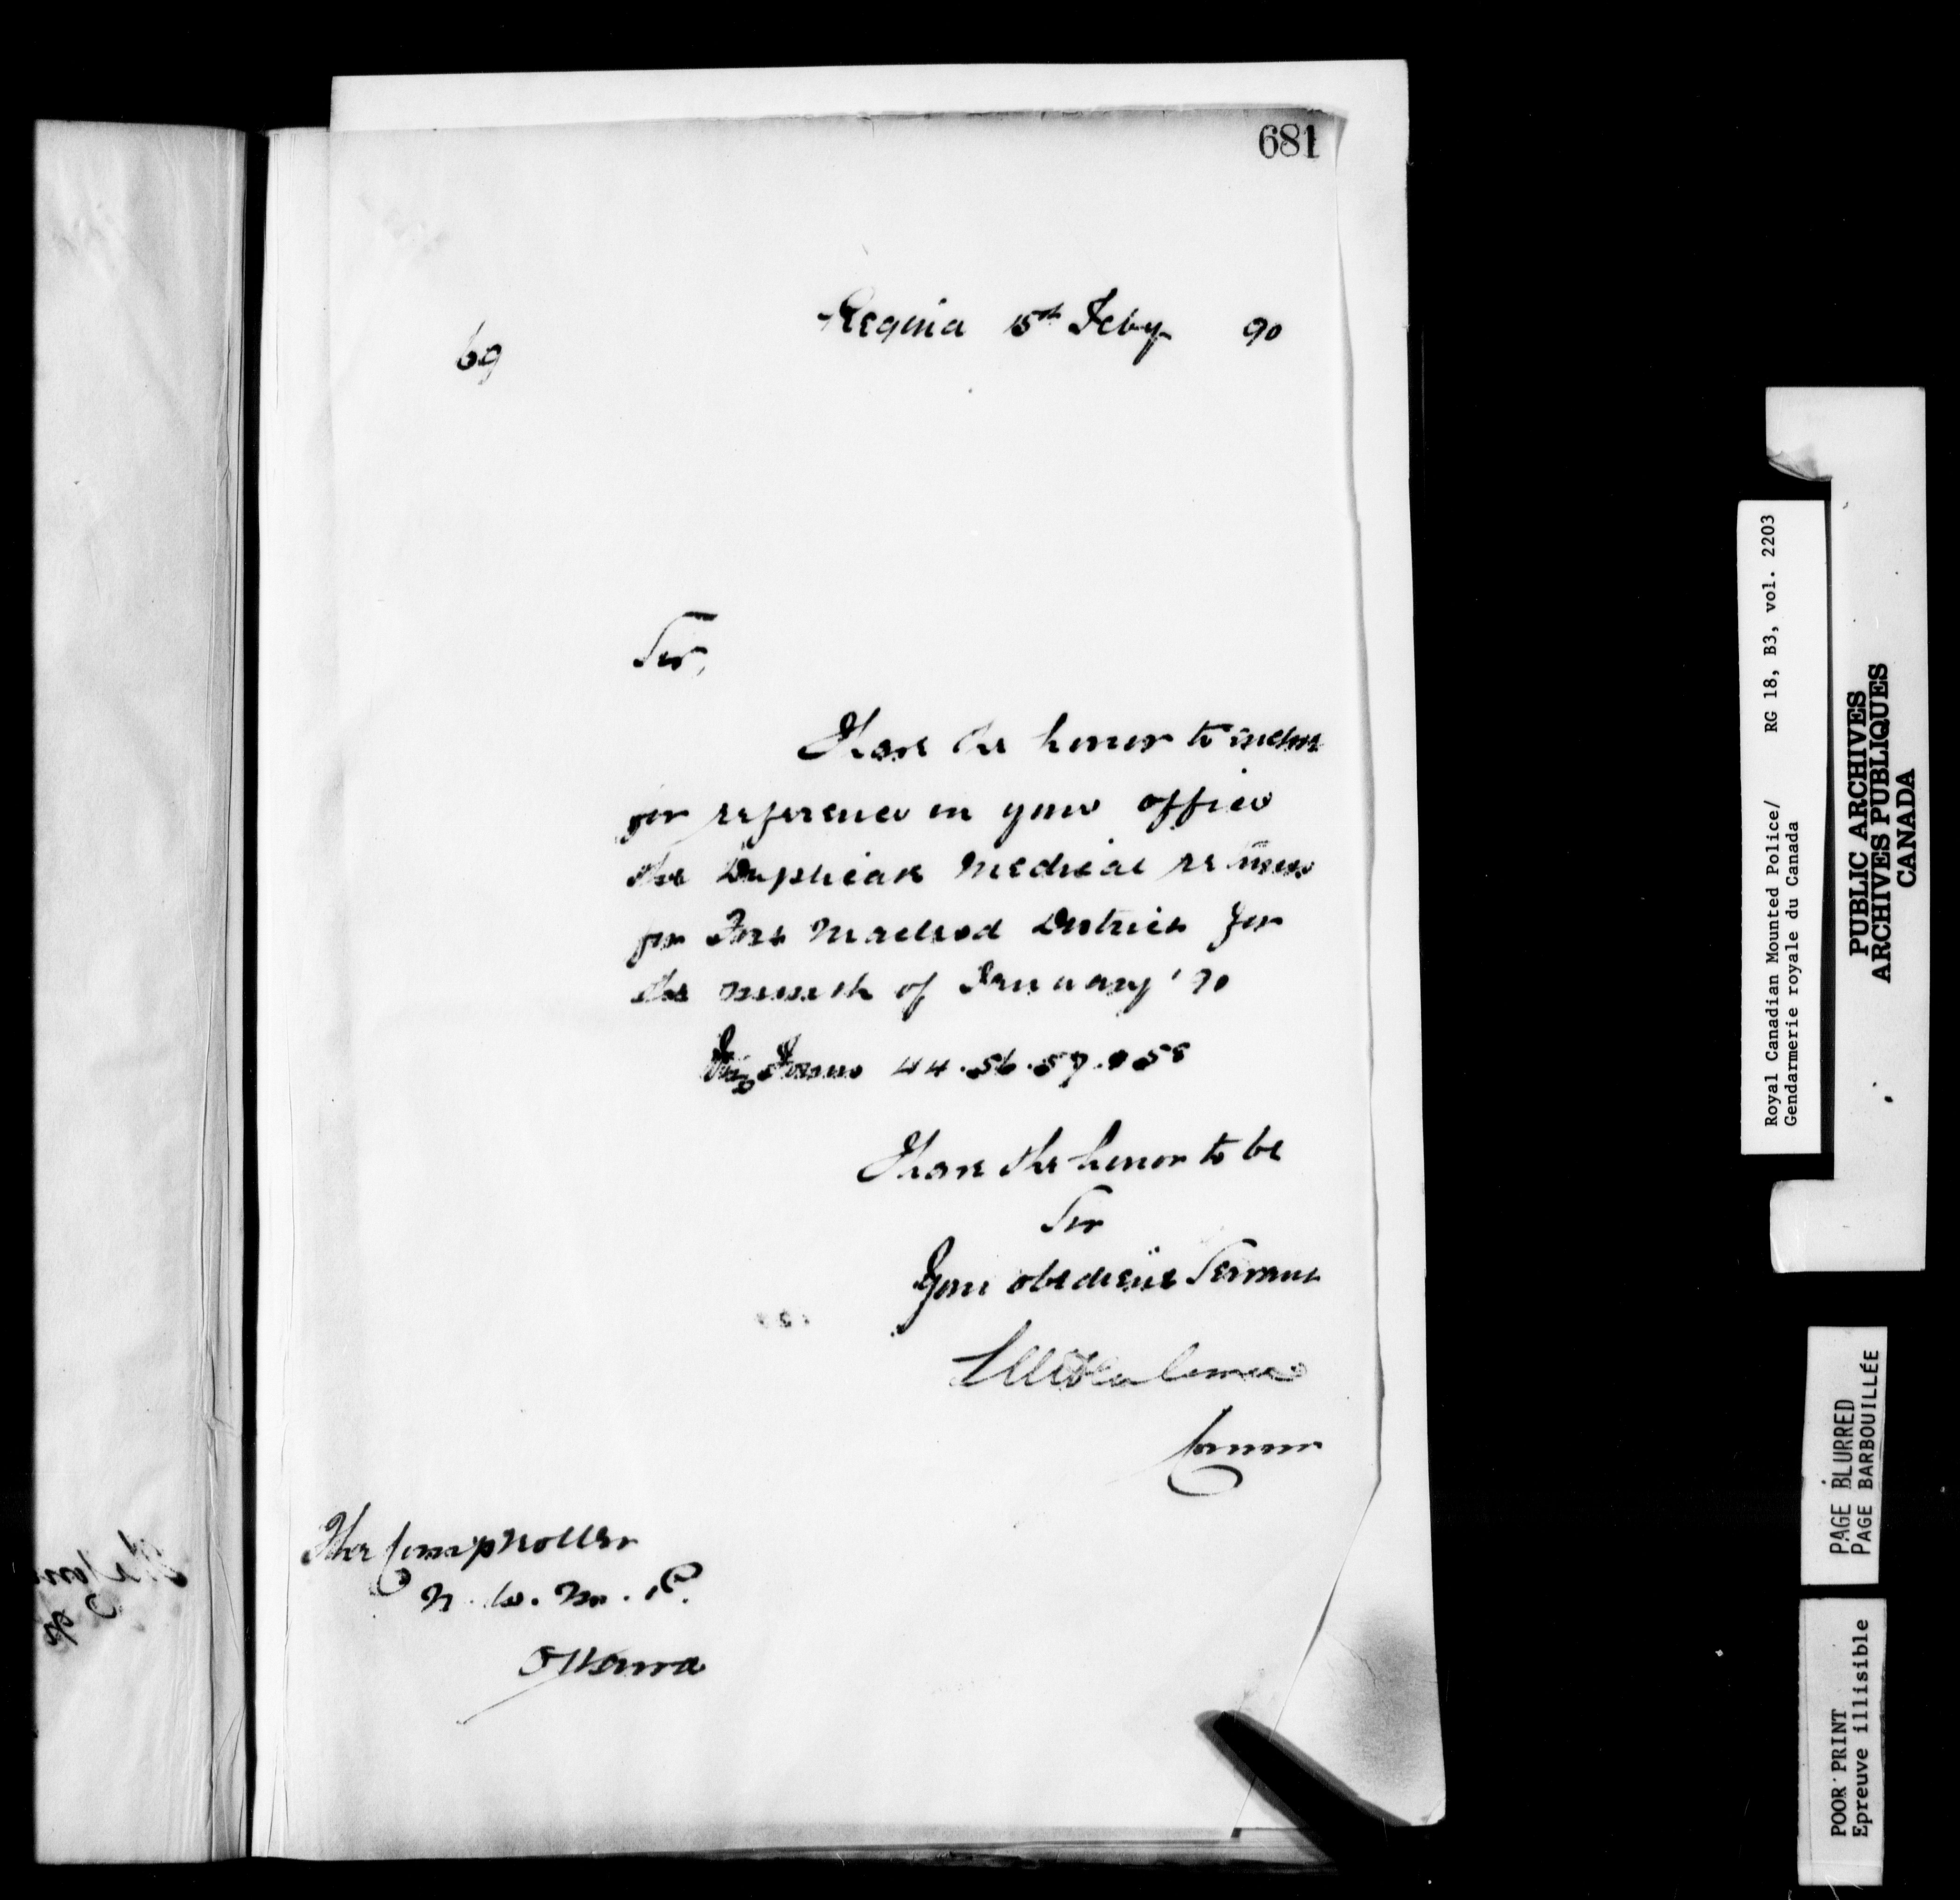 681
Regina 15th Feby 90
69
Sir,
I have the honor to enclose
for reference in your office
the Duplicate Medical returns
for Fort Macleod District for
the month of January '90
Viz Forms 44.56.57.&58
I have the honor to be
Sir
Your obedient Servant
Commr
The Comptroller
N.W.M.P.
Ottawa
Royal Canadian Mounted Police/ RG 18, B3, vol. 2203
Gendarmerie royale du Canada
PUBLIC ARCHIVES
ARCHIVES PUBLIQUES
CANADA
PAGE BLURRED
PAGE BARBOUILLÉE
POOR PRINT
Epreuve illisible